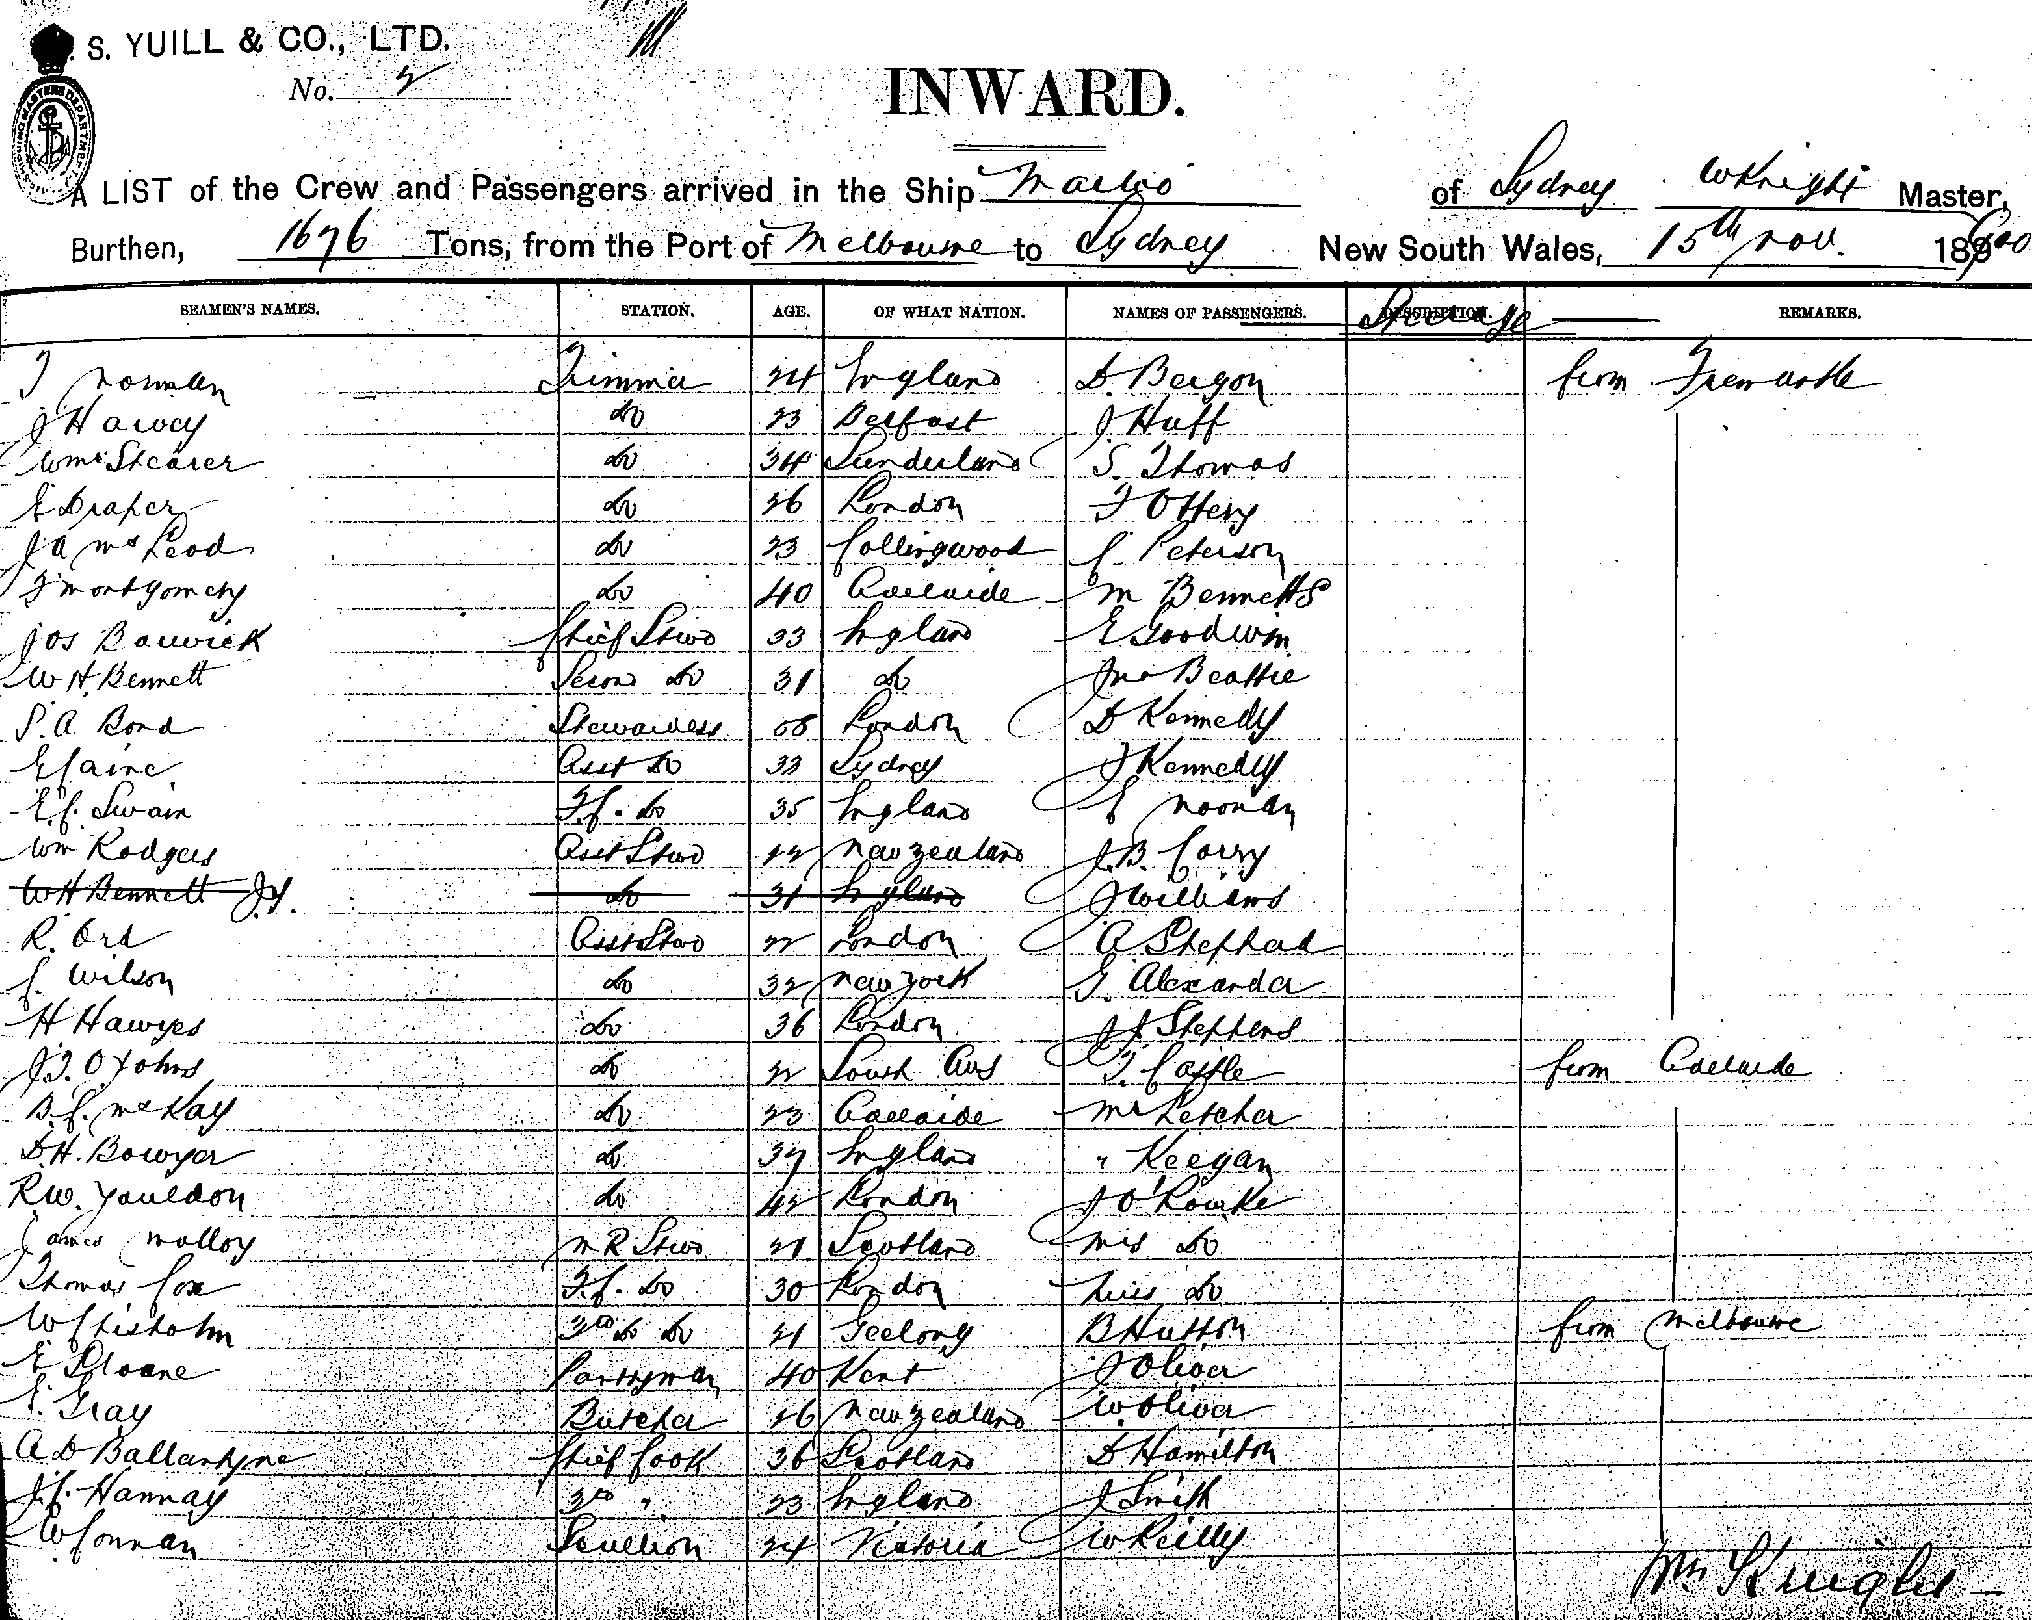 S. YUILL & CO., LTD.
No. 2
INWARD.
A LIST of the Crew and Passengers arrived in the Ship of Sydney W Knight Master,
Burthen, 1676 Tons, from the Port of Melbourne to Sydney New South Wales, 15th Nov. 1900
SEAMEN'S NAMES. STATION. AGE. OF WHAT NATION. NAMES OF PASSENGERS. DESCRIPTION. Steerage REMARKS.
T Norman Trimmer 24 England D. Bergon from Fremantle
J Harvey do 23 Belfast J. Huff
Wm Shearer do 34 Sunderland S. Thomas
E Draper do 26 London F Ottery
J A McLeod do 23 Collingwood C. Peterson
F Montgomery do 40 Adelaide M Bennetts
Jos Barwick Chief Stwd 33 England E Goodwin
W H Bennett Second do 31 do Jno Beattie
S. A. Bond Stewardess London D Kennedy
E Caine Asst do 33 Sydney J Kennedy
E. C. Swain F. C. do 35 England E Noonan
Wm Rodgers Asst Stwd 22 New Zealand J. B. Corry
W H Bennett do 31 England J Williams
R. Ord Asst Stwd 22 London A Shepherd
C. Wilson do 32 New York G. Alexander
H Hawyes do 36 London J J Stephens
J. T. O Johns do 22 South Aus T. Castle from Adelaide
B. C. McKay do 23 Adelaide Mr Letcher
D. H. Bowyer do 37 England " Keegan
R. W. Youldon do 42 London J O'Rourke
James Molloy M R Stwd 21 Scotland Mrs do
Thomas Cox F. C. do 30 London Miss do
W Chisholm 3rd do do 21 Geelong B Hutton from Melbourne
E Sloane Pantryman 40 Kent J Oliver
E. Gray Butcher 26 New Zealand W. Oliver
A D Ballantyne Chief Cook 36 Scotland D Hamilton
J. C. Hannay 3rd " 23 England J Smith
W Connan Scullion 24 Victoria W Reilly
Wm Knight